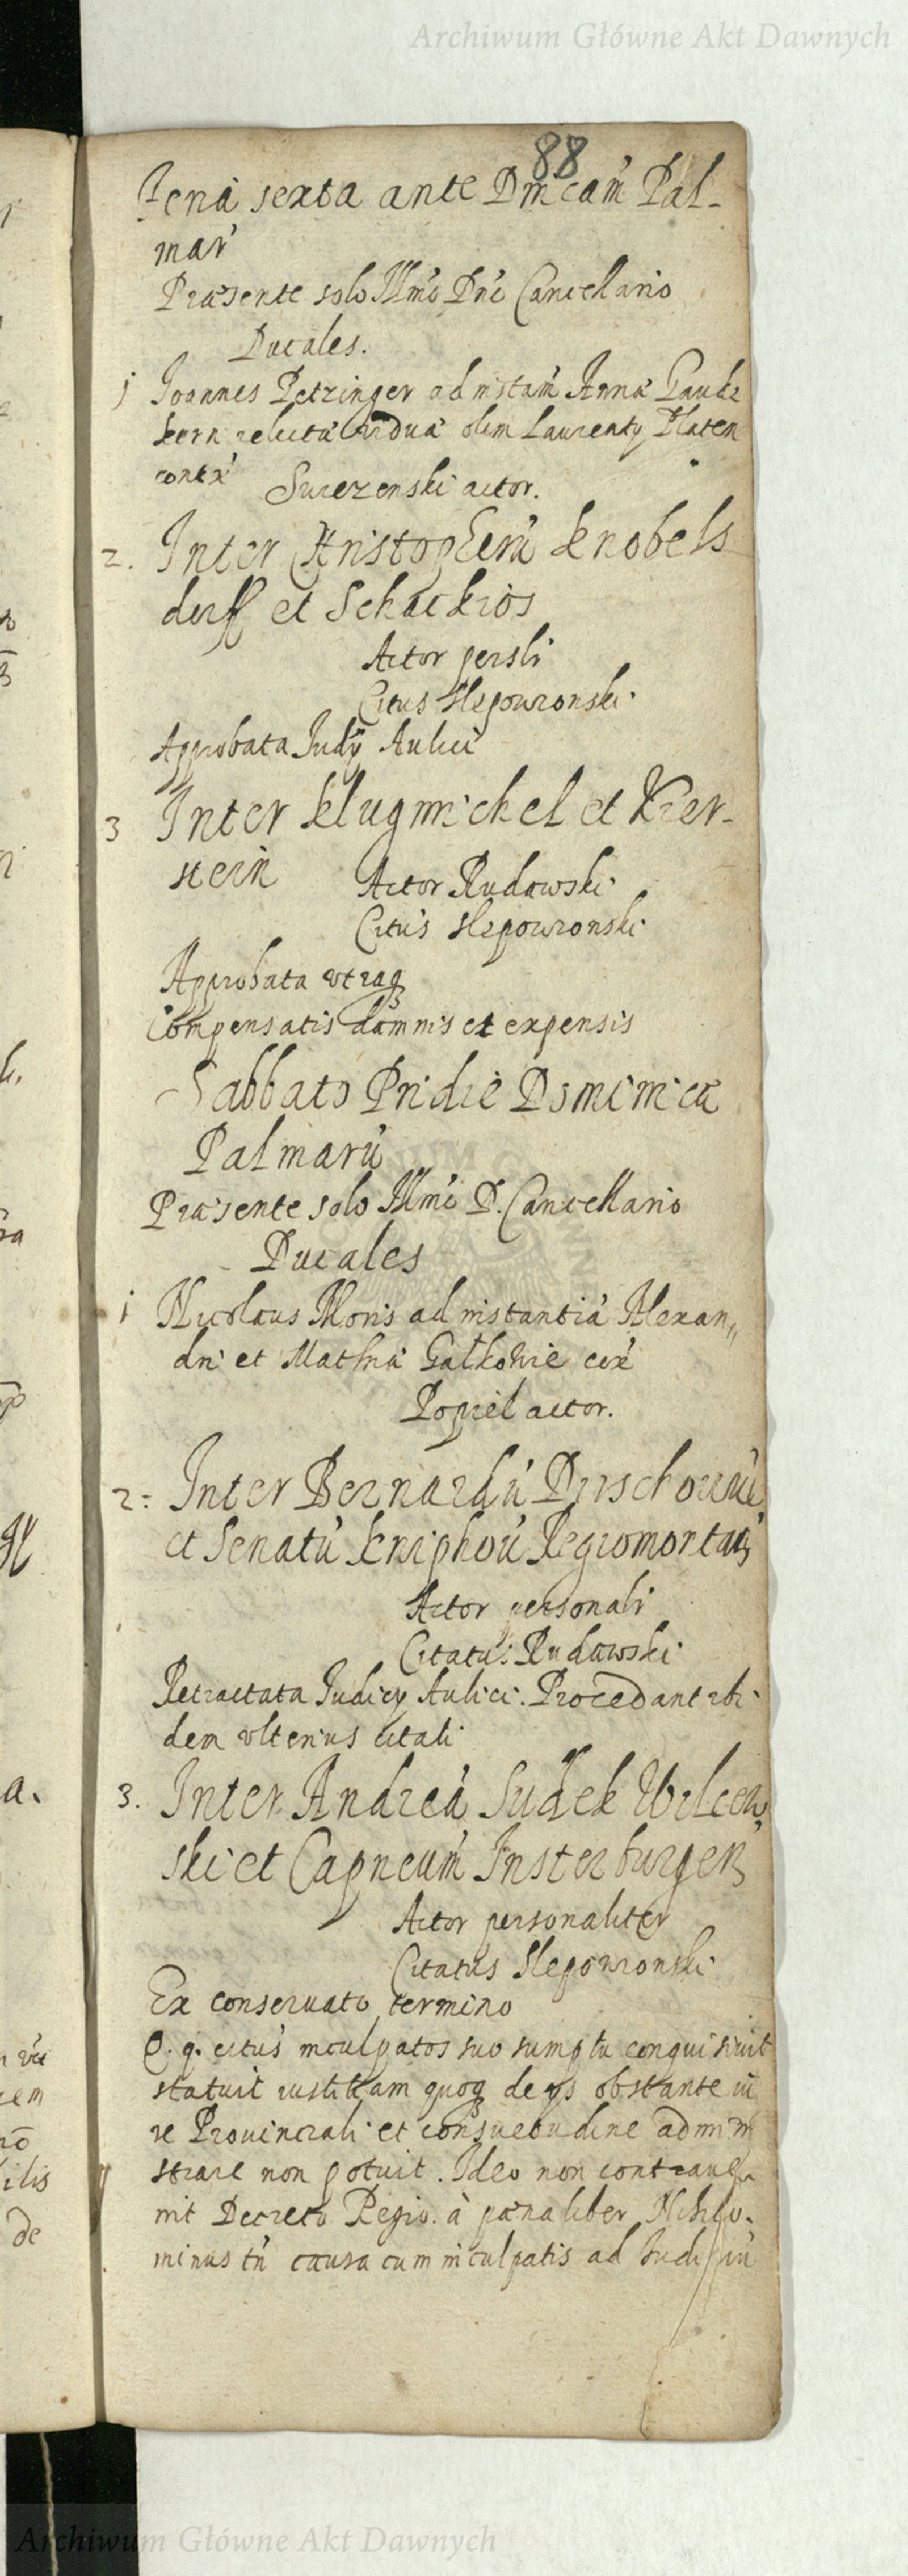 Archiwum Główne Akt Dawnych
88
Feria sexta ante Dmcam Pal-
mar
Praesente solo Illmo Dno Cancellario
Ducales.
j Joannes Petzinger ad instam Anna
kern relicta vidua olim Laurenty Platen
contr
Swiezenski actor.
2. Inter Christopherum Knobels
dorff et Schackios
Actor persli
Citus Slepowronski
Approbata Judy Aulici
3 Inter Klugmichel et Kier-
stein Actor Rudawski
Citus Slepowronski
Approbata utraq
Compensatis damnis et expensis
Sabbato Pridie Dominica
Palmaru
Praesente solo Illmo D. Cancellario
Ducales
j Nicolaus Moris ad instantia Alexan„
dri et Mathia Gatkowie
Popiel actor.
2: Inter Bernardu
et Senatu Kniphou Regiomontan
Actor personali
Citatus Rudawski
Retractata Judicy Aulici. Procedant ibi
dem ulterius citati
3. Inter Andrea Sudek Wilcew
ski et Capneum Insterburgen
Actor personaliter
Citatus Slepowronski
Ex conseruato termino
Q. q. citus inculpatos suo sumptu conquisiuit
statuit iustitiam quoq de ys obstante iu
re Prouinciali et consuetudine admini
strare non potuit. Ideo non contraue
nit Decreto Regio. à paena liber Nihilo.
minus tn causa cum inculpatis ad Judiciu
Archiwum Główne Akt Dawnych